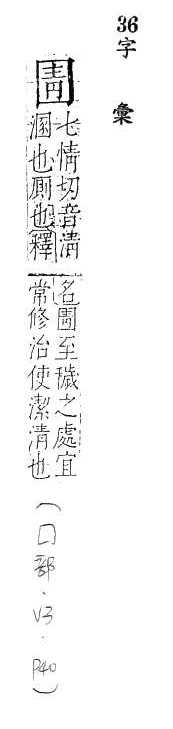 36字彙
圊
七情切音清
溷也厠也釋
名圊至穢之處宜
常修治使潔清也
(口部.V3.P40)